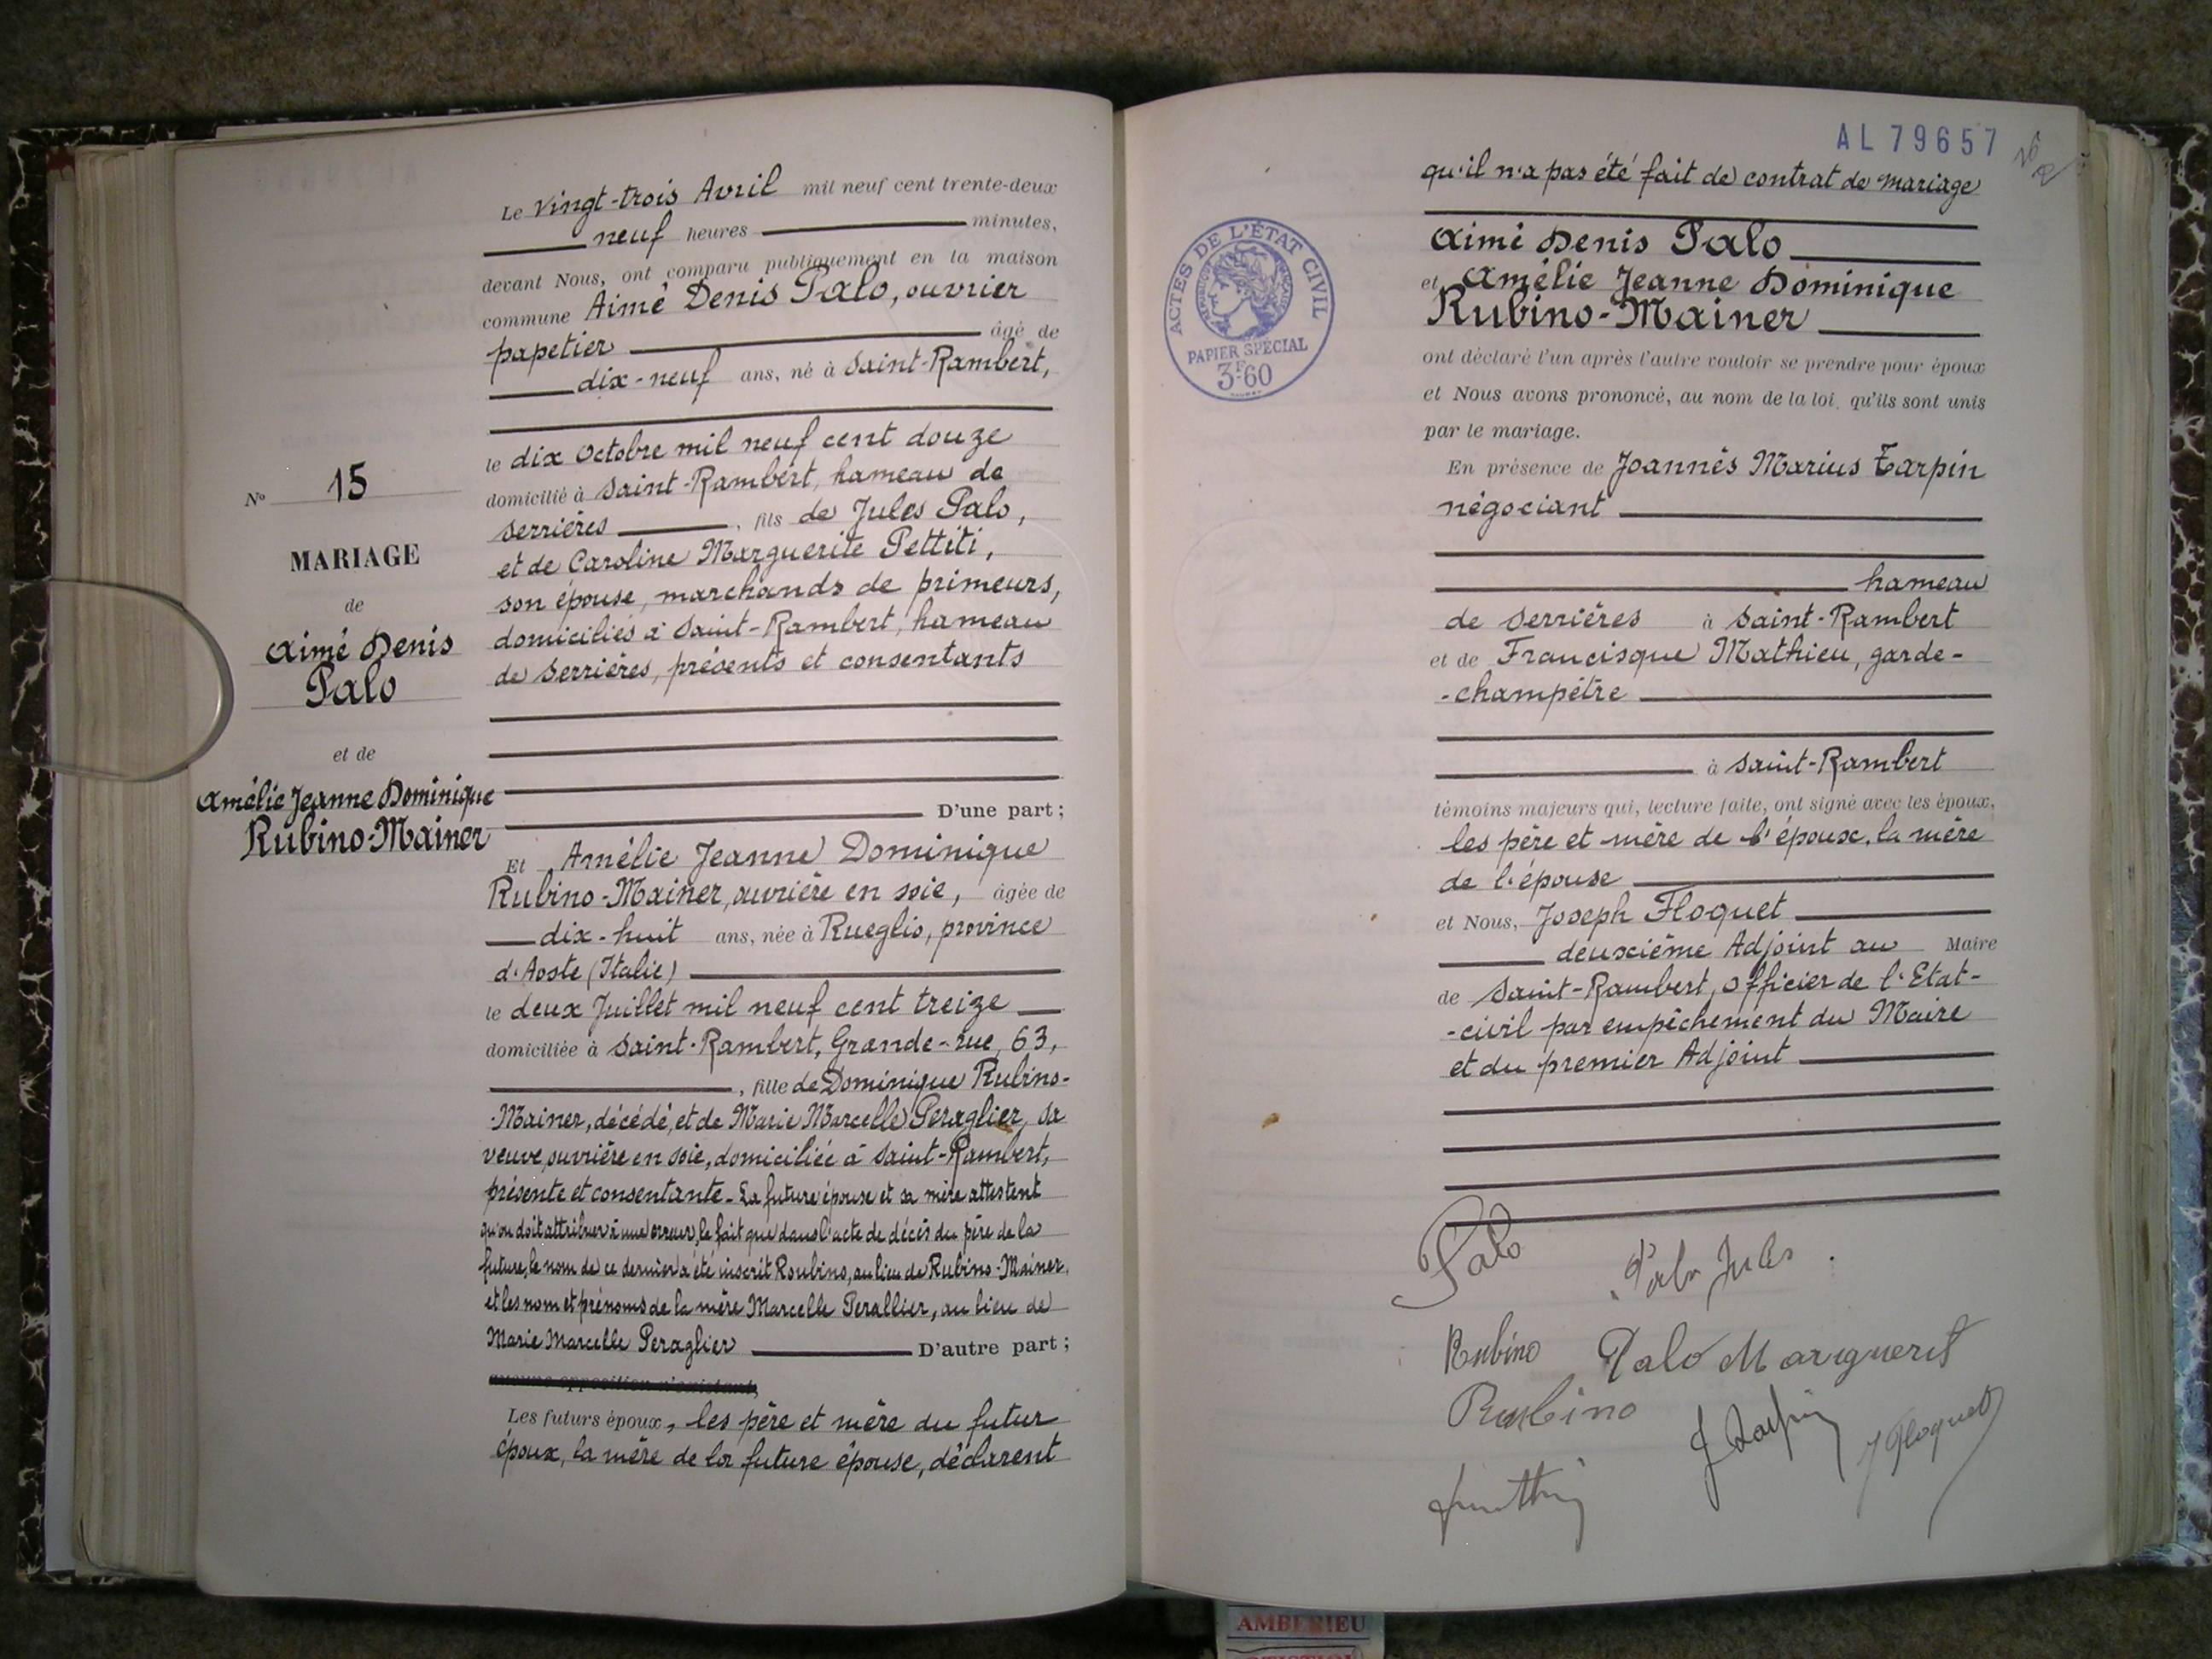 Le vingt-trois Avril mil neuf cent trente-deux
neuf heures minutes,
devant Nous, ont comparu publiquement en la maison
commune Aimé Denis Palo, ouvrier
papetier âgé de
dix-neuf ans, né à Saint-Rambert,
le dix Octobre mil neuf cent douze
domicilié à Saint-Rambert, hameau de
Serrières, fils de Jules Palo,
et de Caroline Marguerite Pettiti,
son épouse, marchands de primeurs,
domiciliés à Saint-Rambert, hameau
de Serrières, présents et consentants
D'une part ;
N° 15
MARIAGE
de
Aimé Denis
Palo
et de
Amélie Jeanne Dominique
Rubino-Mainer
Et Amélie Jeanne Dominique
Rubino-Mainer, ouvrière en soie, âgée de
dix-huit ans, née à Rueglio, province
d'Aoste (Italie)
le deux Juillet mil neuf cent treize
domiciliée à Saint-Rambert, Grande-rue, 63,
, fille de Dominique Rubino-
-Mainer, décédé, et de Marie Marcelle Peraglier, sa
veuve, ouvrière en soie, domiciliée à Saint-Rambert,
présente et consentante - La future épouse et sa mère attestent
qu'on doit attribuer à une erreur, le fait que dans l'acte de décès du père de la
future, le nom de ce dernier a été inscrit Roubino, au lieu de Rubino-Mainer,
et les nom et prénoms de la mère Marcelle Perallier, au lieu de
Marie Marcelle Peraglier D'autre part ;
aucune opposition n'existant,
Les futurs époux, les père et mère du futur
époux, la mère de la future épouse, déclarent
AL 79657
qu'il n'a pas été fait de contrat de mariage
Aimé Denis Palo
et Amélie Jeanne Dominique
Rubino-Mainer
ont déclaré l'un après l'autre vouloir se prendre pour époux
et Nous avons prononcé, au nom de la loi, qu'ils sont unis
par le mariage.
En présence de Joannès Marius Tarpin
négociant
hameau
de Serrières à Saint-Rambert
et de Francisque Mathieu, garde-
-champêtre
à Saint-Rambert
témoins majeurs qui, lecture faite, ont signé avec les époux,
les père et mère de l'époux, la mère
de l'épouse
et Nous, Joseph Floquet
deuxième Adjoint au Maire
de Saint-Rambert, Officier de l'Etat-
-civil par empêchement du Maire
et du premier Adjoint
Palo
Palo Jules
Rubino Palo Marguerit
Rubino
J Tarpin
J Floquet
ACTES DE L'ÉTAT CIVIL
RÉPUBLIQUE FRANÇAISE
PAPIER SPÉCIAL
3F60
AMBERIEU